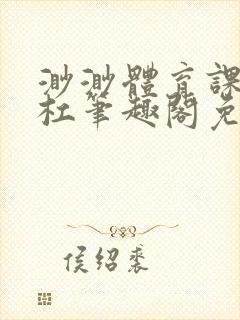 渺渺體育課
杜筆趣閣免
侯紹裘